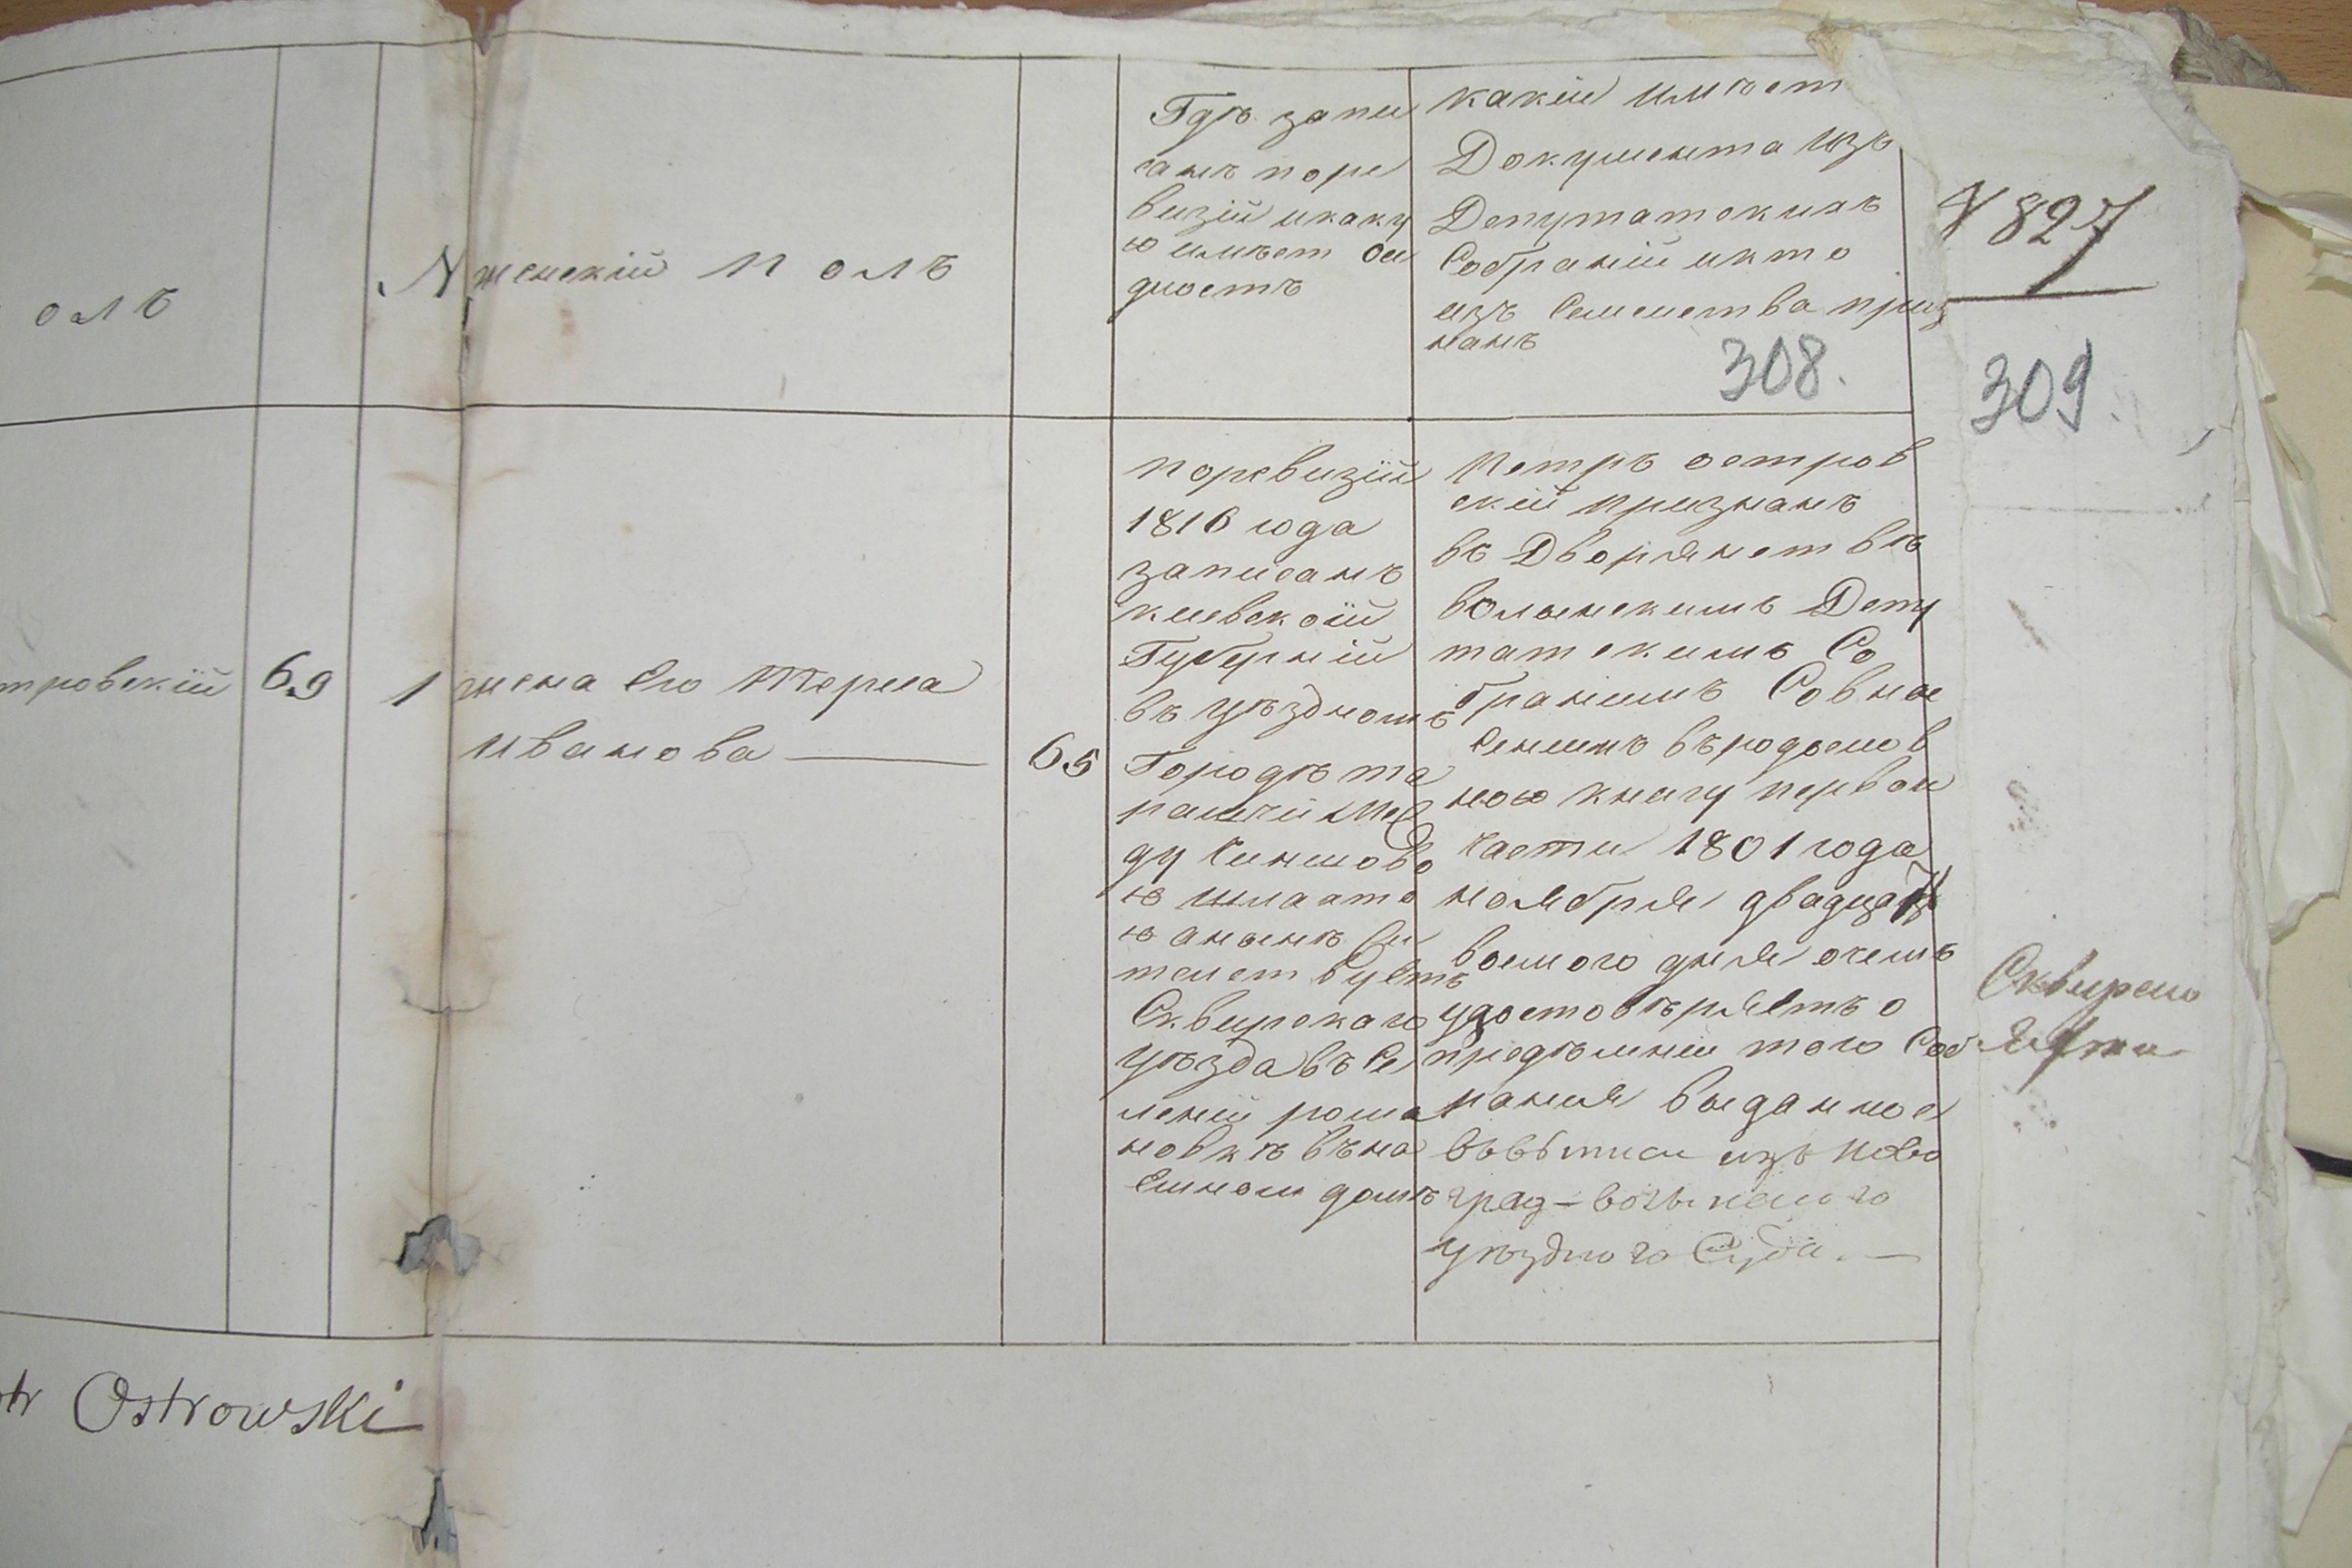 олъ
№ женскій полъ
Гдѣ запи
санъ поре
визіи икаку
ю имѣет осе
длостъ
какіи имѣет
Документа изъ
Депутатскихъ
Собраніи икто
изъ Семейства приз
нанъ
№ 827
308.
309.
тровскій 69
1 жена Его Тереса
иванова —
65
поревизіи
1816 года
записанъ
киевской
Губерніи
въ уѣздномъ
Городѣ та
ращи Меж
ду Чиншово
ю шляхто
ю анынѣ жи
телствуетъ
Сквирскаго
уѣзда въ се
леніи рома
новкѣ въна
емном домѣ
Петръ остров
скій признанъ
въ Дворянствѣ
волынскимъ Депу
татскимъ Со
браніимъ Совнѣ
сениемъ въродослов
ною книгу первой
Части 1801 года
ноября двадцать
восмого дня очемъ
удостовѣряетъ о
предѣленіи того Соб
рания выданное
въвыписи изъ Ново
град-волынскаго
уѣзднаго Суда. —
Сквирско
Ostrowski